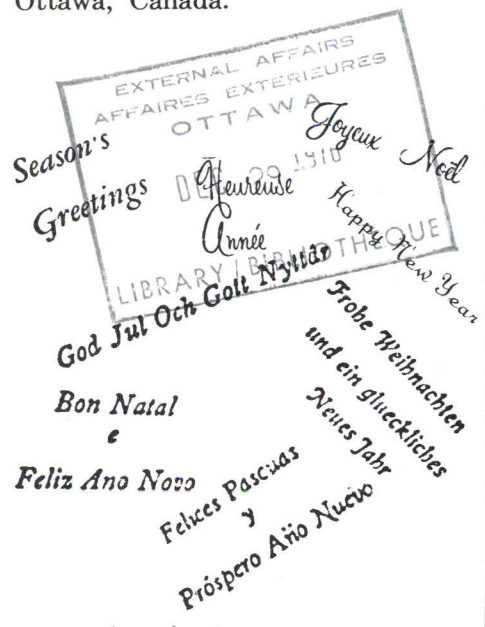 Ottawa, Canada.
EXTERNAL AFFAIRS
AFFAIRES EXTERIEURES
OTTAWA
DEC 29 1970
LIBRARY / BIBLIOTHEQUE
Season's
Greetings
Heureuse
Année
Joyeux Noël
Happy New Year
God Jul Och Gott Nyttår
Frohe Weihnachten
und ein glueckliches
Neues Jahr
Bon Natal
e
Feliz Ano Novo
Felices Pascuas
y
Próspero Año Nuevo